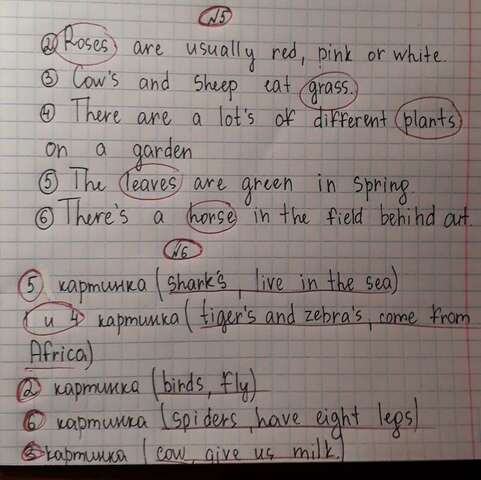 №5
② Roses are usually red, pink or white.
③ Cow's and sheep eat grass.
④ There are a lot's of different plants
on a garden
⑤ The leaves are green in spring.
⑥ There's a horse in the field behihd out.
№6
⑤ картинка (shark's, live in the sea)
1 и 4 картинка (tiger's and zebra's, come from
Africa)
② картинка (birds, fly)
⑥ картинка (spiders, have eight legs)
③ картинка (cow, give us milk.)